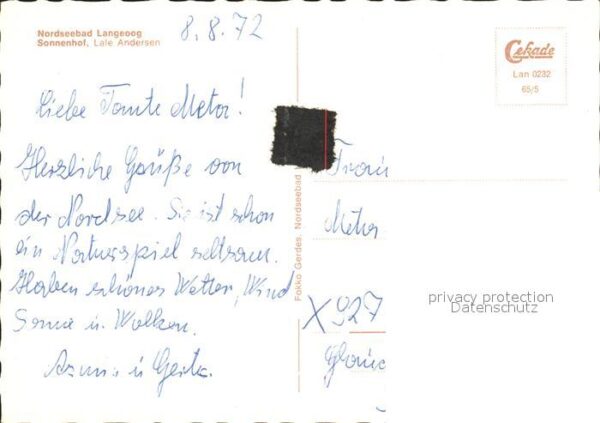 Nordseebad Langeoog
Sonnenhof, Lale Andersen
8.8.72
Liebe Tante Meta!
Herzliche Grüße von
der Nordsee. Sie ist schon
ein Naturspiel seltsam.
Haben schönes Wetter, Wind
Sonne u. Wolken.
u. Gerta.
Fokko Gerdes, Nordseebad
Cekade
Lan 0232
65/5
Frau
Meta
X 927
privacy protection
Datenschutz